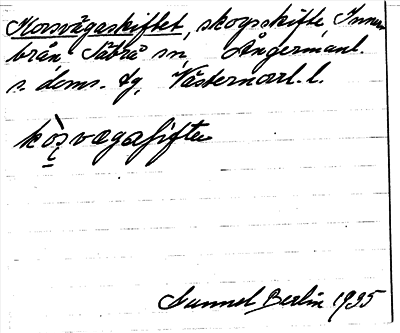 Korsvägaskiftet, skogsskifte, Innan-
brån, Säbrå sn, Ångermanl.
s. doms. tg, Västernorrl. l.
kòsvægaʃifte
Gunnel Berlin 1935